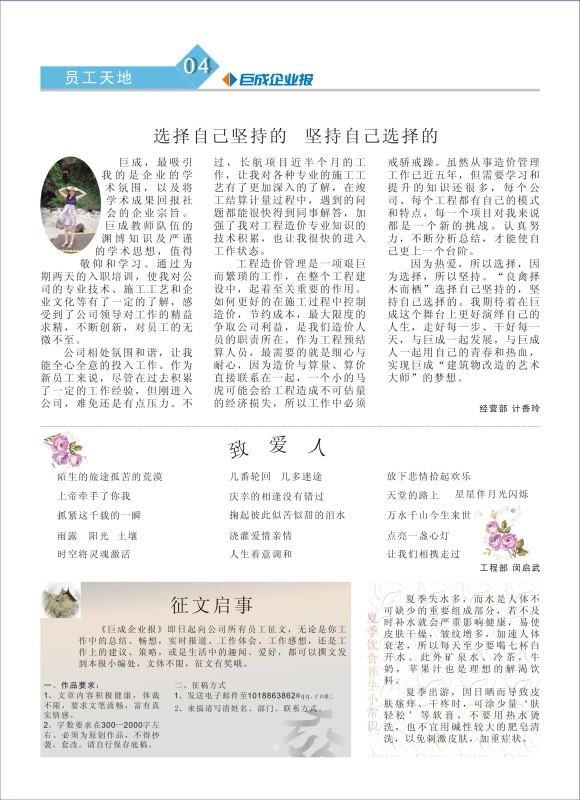 员工天地
04
巨成企业报
选择自己坚持的 坚持自己选择的
巨成，最吸引
我的是企业的学
术氛围，以及将
学术成果回报社
会的企业宗旨。
巨成教师队伍的
渊博知识及严谨
的学术思想，值得
敬仰和学习。通过为
期两天的入职培训，使我对公
司的专业技术、施工工艺和企
业文化等有了一定的了解，感
受到了公司领导对工作的精益
求精，不断创新，对员工的无
微不至。
公司相处氛围和谐，让我
能全心全意的投入工作。作为
新员工来说，尽管在过去积累
了一定的工作经验，但刚进入
公司，难免还是有点压力。不
过，长航项目近半个月的工
作，让我对各种专业的施工工
艺有了更加深入的了解，在竣
工结算计量过程中，遇到的问
题都能很快得到同事解答，加
强了我对工程造价专业知识的
技术积累，也让我很快的进入
工作状态。
工程造价管理是一项艰巨
而繁琐的工作，在整个工程建
设中，起着至关重要的作用。
如何更好的在施工过程中控制
造价，节约成本，最大限度的
争取公司利益，是我们造价人
员的职责所在。作为工程预结
算人员，最需要的就是细心与
耐心，因为造价与算量、算价
直接联系在一起，一个小的马
虎可能会给工程造成不可估量
的经济损失，所以工作中必须
戒骄戒躁。虽然从事造价管理
工作已近五年，但需要学习和
提升的知识还很多，每个公
司、每个工程都有自己的模式
和特点，每一个项目对我来说
都是一个新的挑战。认真努
力，不断分析总结，才能使自
己更上一个台阶。
因为热爱，所以选择，因
为选择，所以坚持。“良禽择
木而栖”选择自己坚持的，坚
持自己选择的。我期待着在巨
成这个舞台上更好演绎自己的
人生，走好每一步、干好每一
天，与巨成一起发展，与巨成
人一起用自己的青春和热血，
实现巨成“建筑物改造的艺术
大师”的梦想。
经营部 计香玲
致爱人
陌生的旅途孤苦的荒漠
上帝牵手了你我
抓紧这千载的一瞬
雨露 阳光 土壤
时空将灵魂激活
几番轮回 几多迷途
庆幸的相逢没有错过
掬起彼此似苦似甜的泪水
浇灌爱情亲情
人生着意调和
放下悲情拾起欢乐
天堂的路上 星星伴月光闪烁
万水千山今生来世
点亮一盏心灯
让我们相携走过
工程部 闵启武
征文启事
《巨成企业报》即日起向公司所有员工征文，无论是你工
作中的总结、畅想，实时报道、工作体会、工作感想，还是工
作上的建议、策略，或是生活中的趣闻、爱好，都可以撰文发
到本报小编处，文体不限，征文有奖哦。
一、作品要求：
1、文章内容积极健康，体裁
不限，要求文笔流畅，富有真
实情感。
2、字数要求在300—2000字左
右。必须为原创作品，不得抄
袭，套改。请自行保存底稿。
二、征稿方式
1、发送电子邮件至1018863862@qq.com；
2、来稿请写清姓名、部门、联系方式。
夏季饮食养生小常识
夏季失水多，而水是人体不
可缺少的重要组成部分，若不及
时补水就会严重影响健康，易使
皮肤干燥，皱纹增多，加速人体
衰老，所以每天至少要喝七杯白
开水。此外矿泉水、冷茶，牛
奶，苹果汁也是理想的解渴饮
料。
夏季出游，因日晒而导致皮
肤瘙痒、干疼时，可涂少量‘肤
轻松’等软膏，不要用热水烫
洗，也不宜用碱性较大的肥皂清
洗，以免刺激皮肤，加重症状。